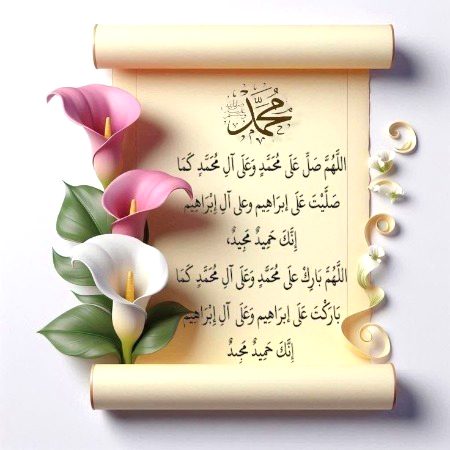 محمد ﷺ
اللَّهُمَّ صَلِّ عَلَى مُحَمَّدٍ وَعَلَى آلِ مُحَمَّدٍ كَمَا
صَلَّيْتَ عَلَى إبرَاهِيم وعلى آلِ إِبْرَاهِيمَ
إِنَّكَ حَمِيدٌ مَجِيدٌ،
اللَّهُمَّ بَارِكْ علَى مُحَمَّدٍ وَعَلَى آلِ مُحَمَّدٍ كَمَا
بَارَكْتَ عَلَى إبرَاهِيم وَعَلَى آلِ إِبْرَاهِيمَ
إِنَّكَ حَمِيدٌ مَجِيدٌ